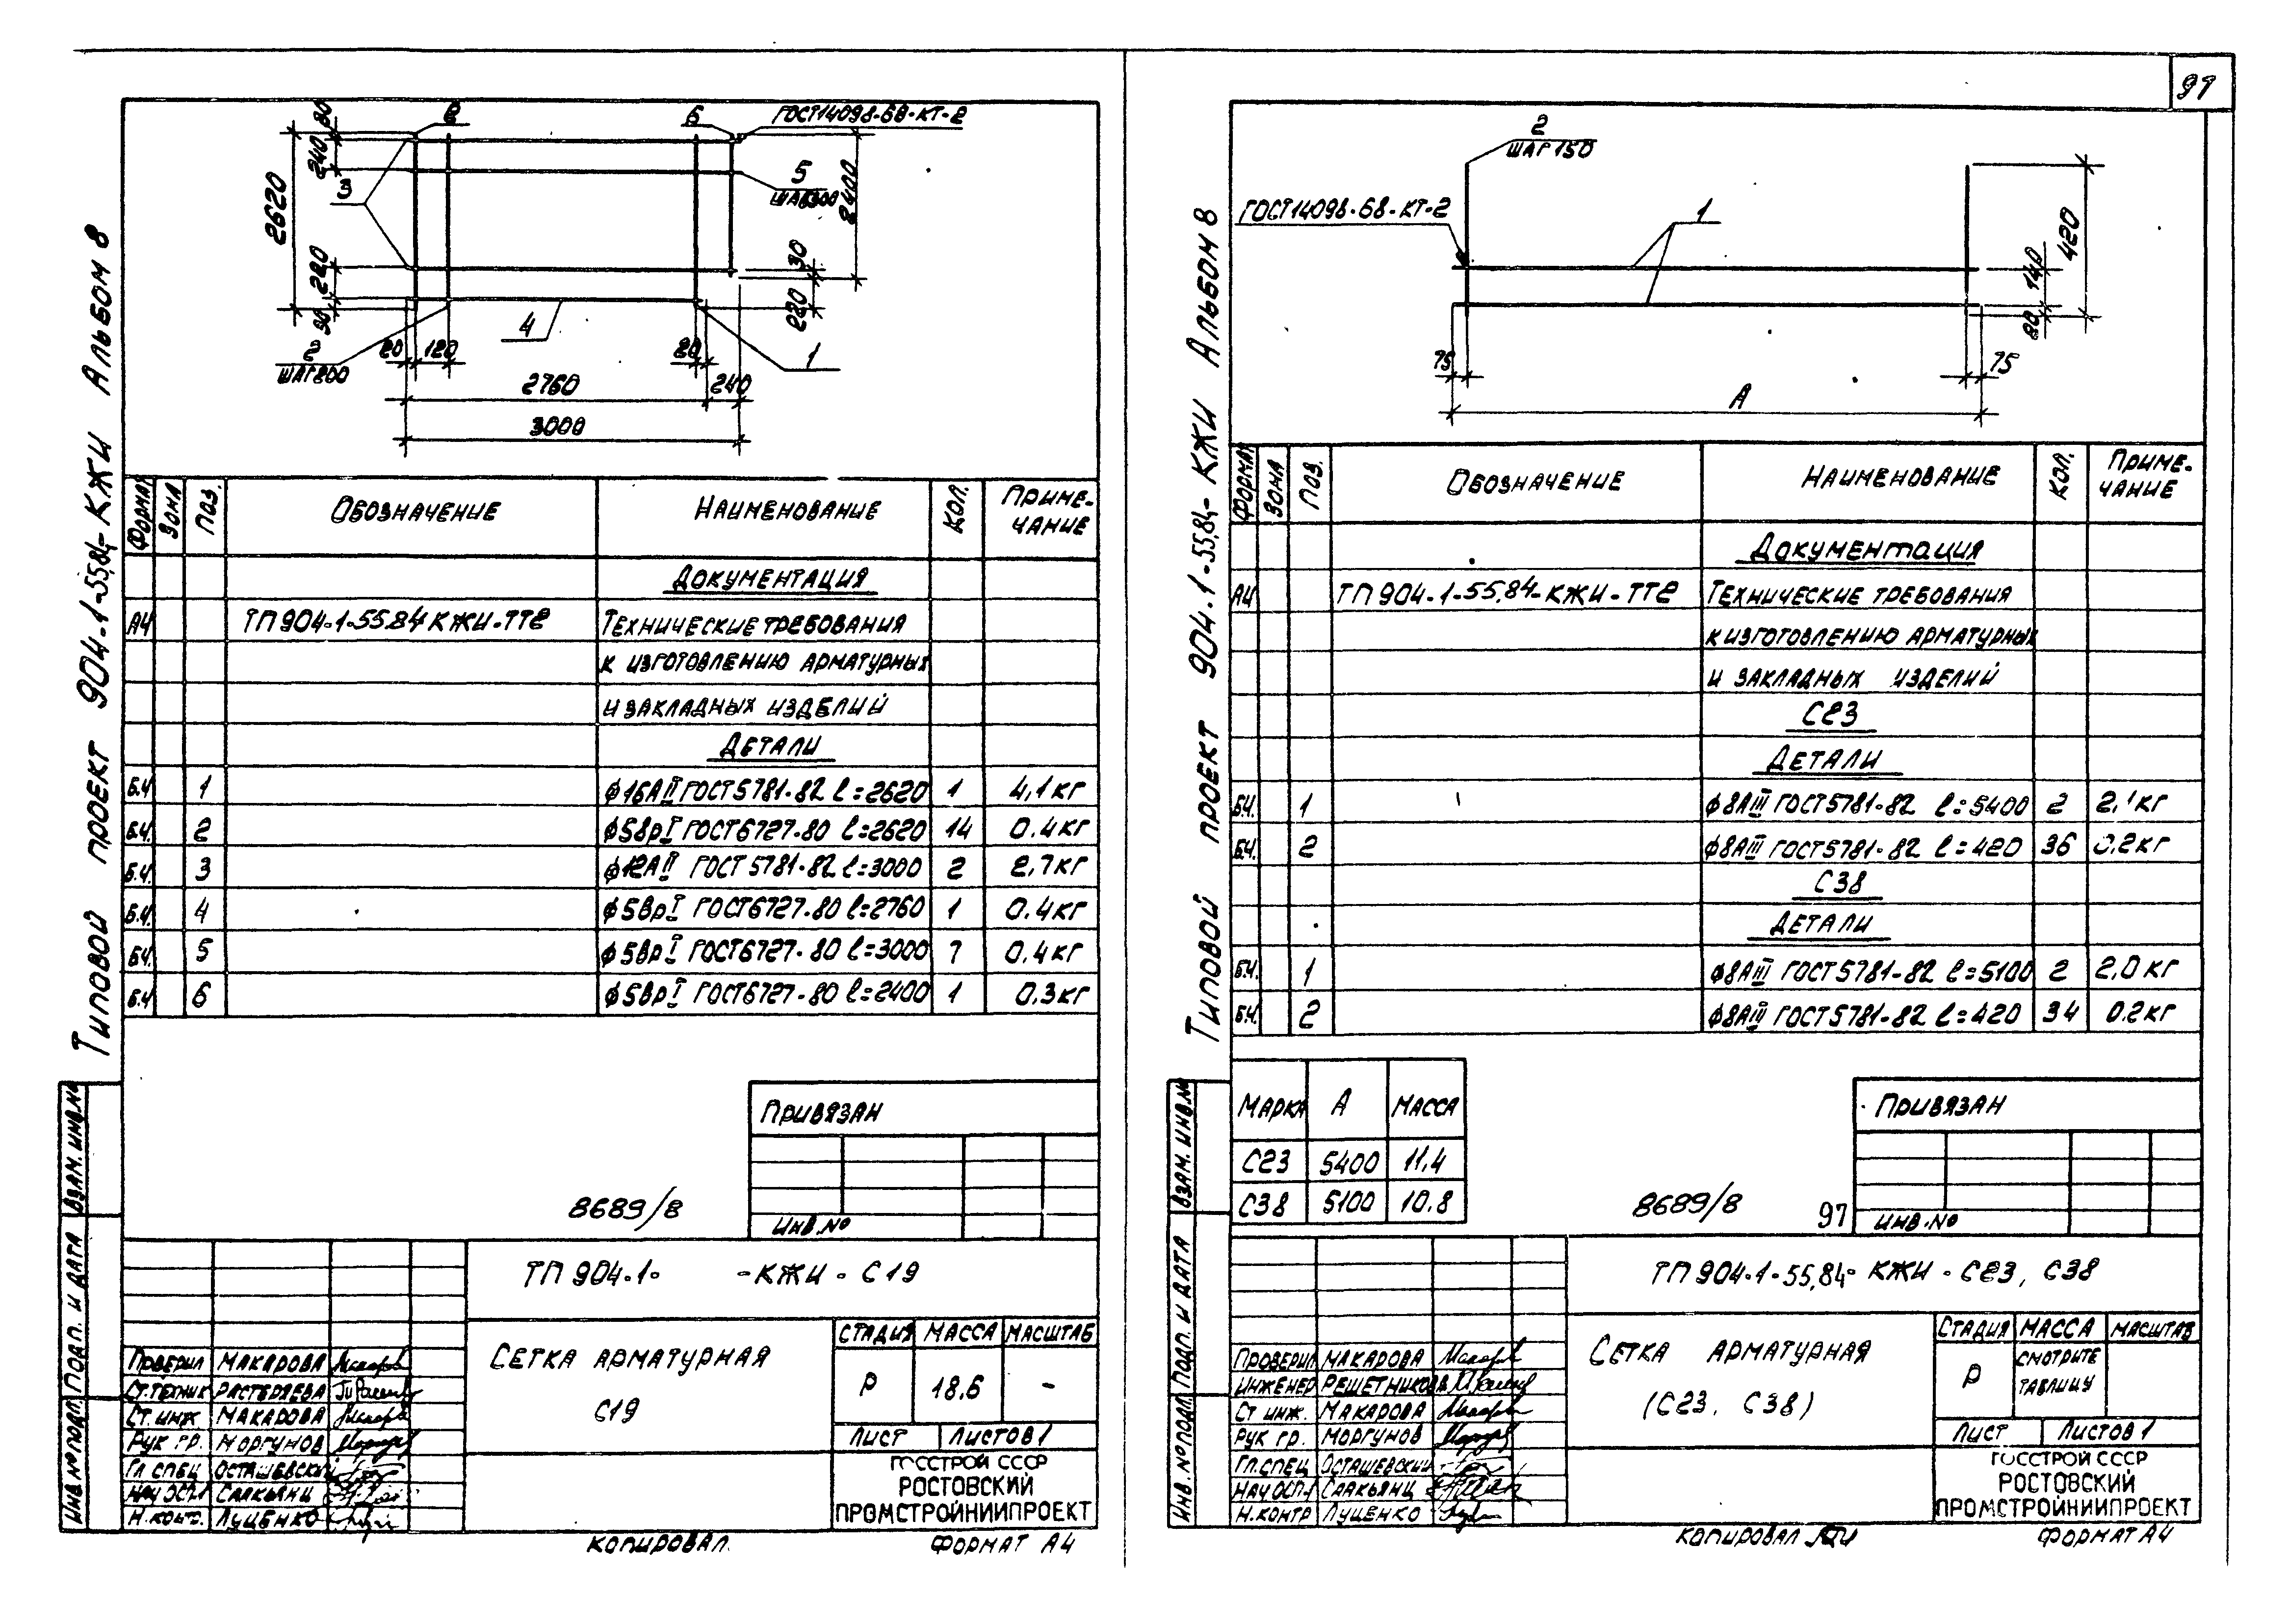 91
Типовой проект 904-1-55.84-КЖИ Альбом 8
80
240
2620
220
30
3
6
6
ГОСТ14098-68-КТ-2
5
ШАГ300
2400
30
220
4
2
ШАГ200
20
120
20
1
2760
240
3000
Формат
Зона
Поз.
Обозначение
Наименование
Кол.
Приме-
чание
Документация
А4 ТП904-1-55.84 КЖИ-ТТ2 Технические требования
к изготовлению арматурных
и закладных изделий
Детали
Б.Ч. 1 ф16АII ГОСТ5781-82 l=2620 1 4,1кг
Б.Ч. 2 ф5ВрI ГОСТ6727-80 l=2620 14 0.4кг
Б.Ч. 3 ф12АII ГОСТ5781-82 l=3000 2 2,7кг
Б.Ч. 4 ф5ВрI ГОСТ6727-80 l=2760 1 0.4кг
Б.Ч. 5 ф5ВрI ГОСТ6727-80 l=3000 7 0.4кг
Б.Ч. 6 ф5ВрI ГОСТ6727-80 l=2400 1 0.3кг
Привязан
Инв.№
8689/8
ТП904-1- -КЖИ-С19
Сетка арматурная
С19
Стадия Масса Масштаб
Р 18.6 -
Лист Листов 1
Госстрой СССР
РОСТОВСКИЙ
ПРОМСТРОЙНИИПРОЕКТ
Проверил Макарова
Ст.техник Растеряева
Ст. инж. Макарова
Рук гр. Моргунов
Гл спец Осташевский
Нач ОСП-1 Саакьянц
Н.контр. Луценко
Взам. инв.№
Подп. и дата
Инв.№ подл.
Копировал
Формат А4
Типовой проект 904-1-55.84-КЖИ Альбом 8
2
ШАГ150
ГОСТ14098-68-КТ-2
1
420
140
80
75
75
А
Формат
Зона
Поз.
Обозначение
Наименование
Кол.
Приме-
чание
Документация
А4 ТП904-1-55.84-КЖИ-ТТ2 Технические требования
к изготовлению арматурных
и закладных изделий
С23
Детали
Б.Ч. 1 ф8АIII ГОСТ5781-82 l=5400 2 2,1кг
Б.Ч. 2 ф8АIII ГОСТ5781-82 l=420 36 0.2кг
С38
Детали
Б.Ч. 1 ф8АIII ГОСТ5781-82 l=5100 2 2.0кг
Б.Ч. 2 ф8АIII ГОСТ5781-82 l=420 34 0.2кг
Марка А Масса
С23 5400 11,4
С38 5100 10.8
Привязан
Инв.№
8689/8
97
ТП904-1-55.84-КЖИ-С23, С38
Сетка арматурная
(С23, С38)
Стадия Масса Масштаб
Р Смотрите
таблицу
Лист Листов 1
Госстрой СССР
РОСТОВСКИЙ
ПРОМСТРОЙНИИПРОЕКТ
Проверил Макарова
Инженер Решетникова
Ст инж. Макарова
Рук гр. Моргунов
Гл.спец Осташевский
Нач ОСП-1 Саакьянц
Н.контр Луценко
Взам. инв.№
Подп. и дата
Инв.№ подл.
Копировал
Формат А4